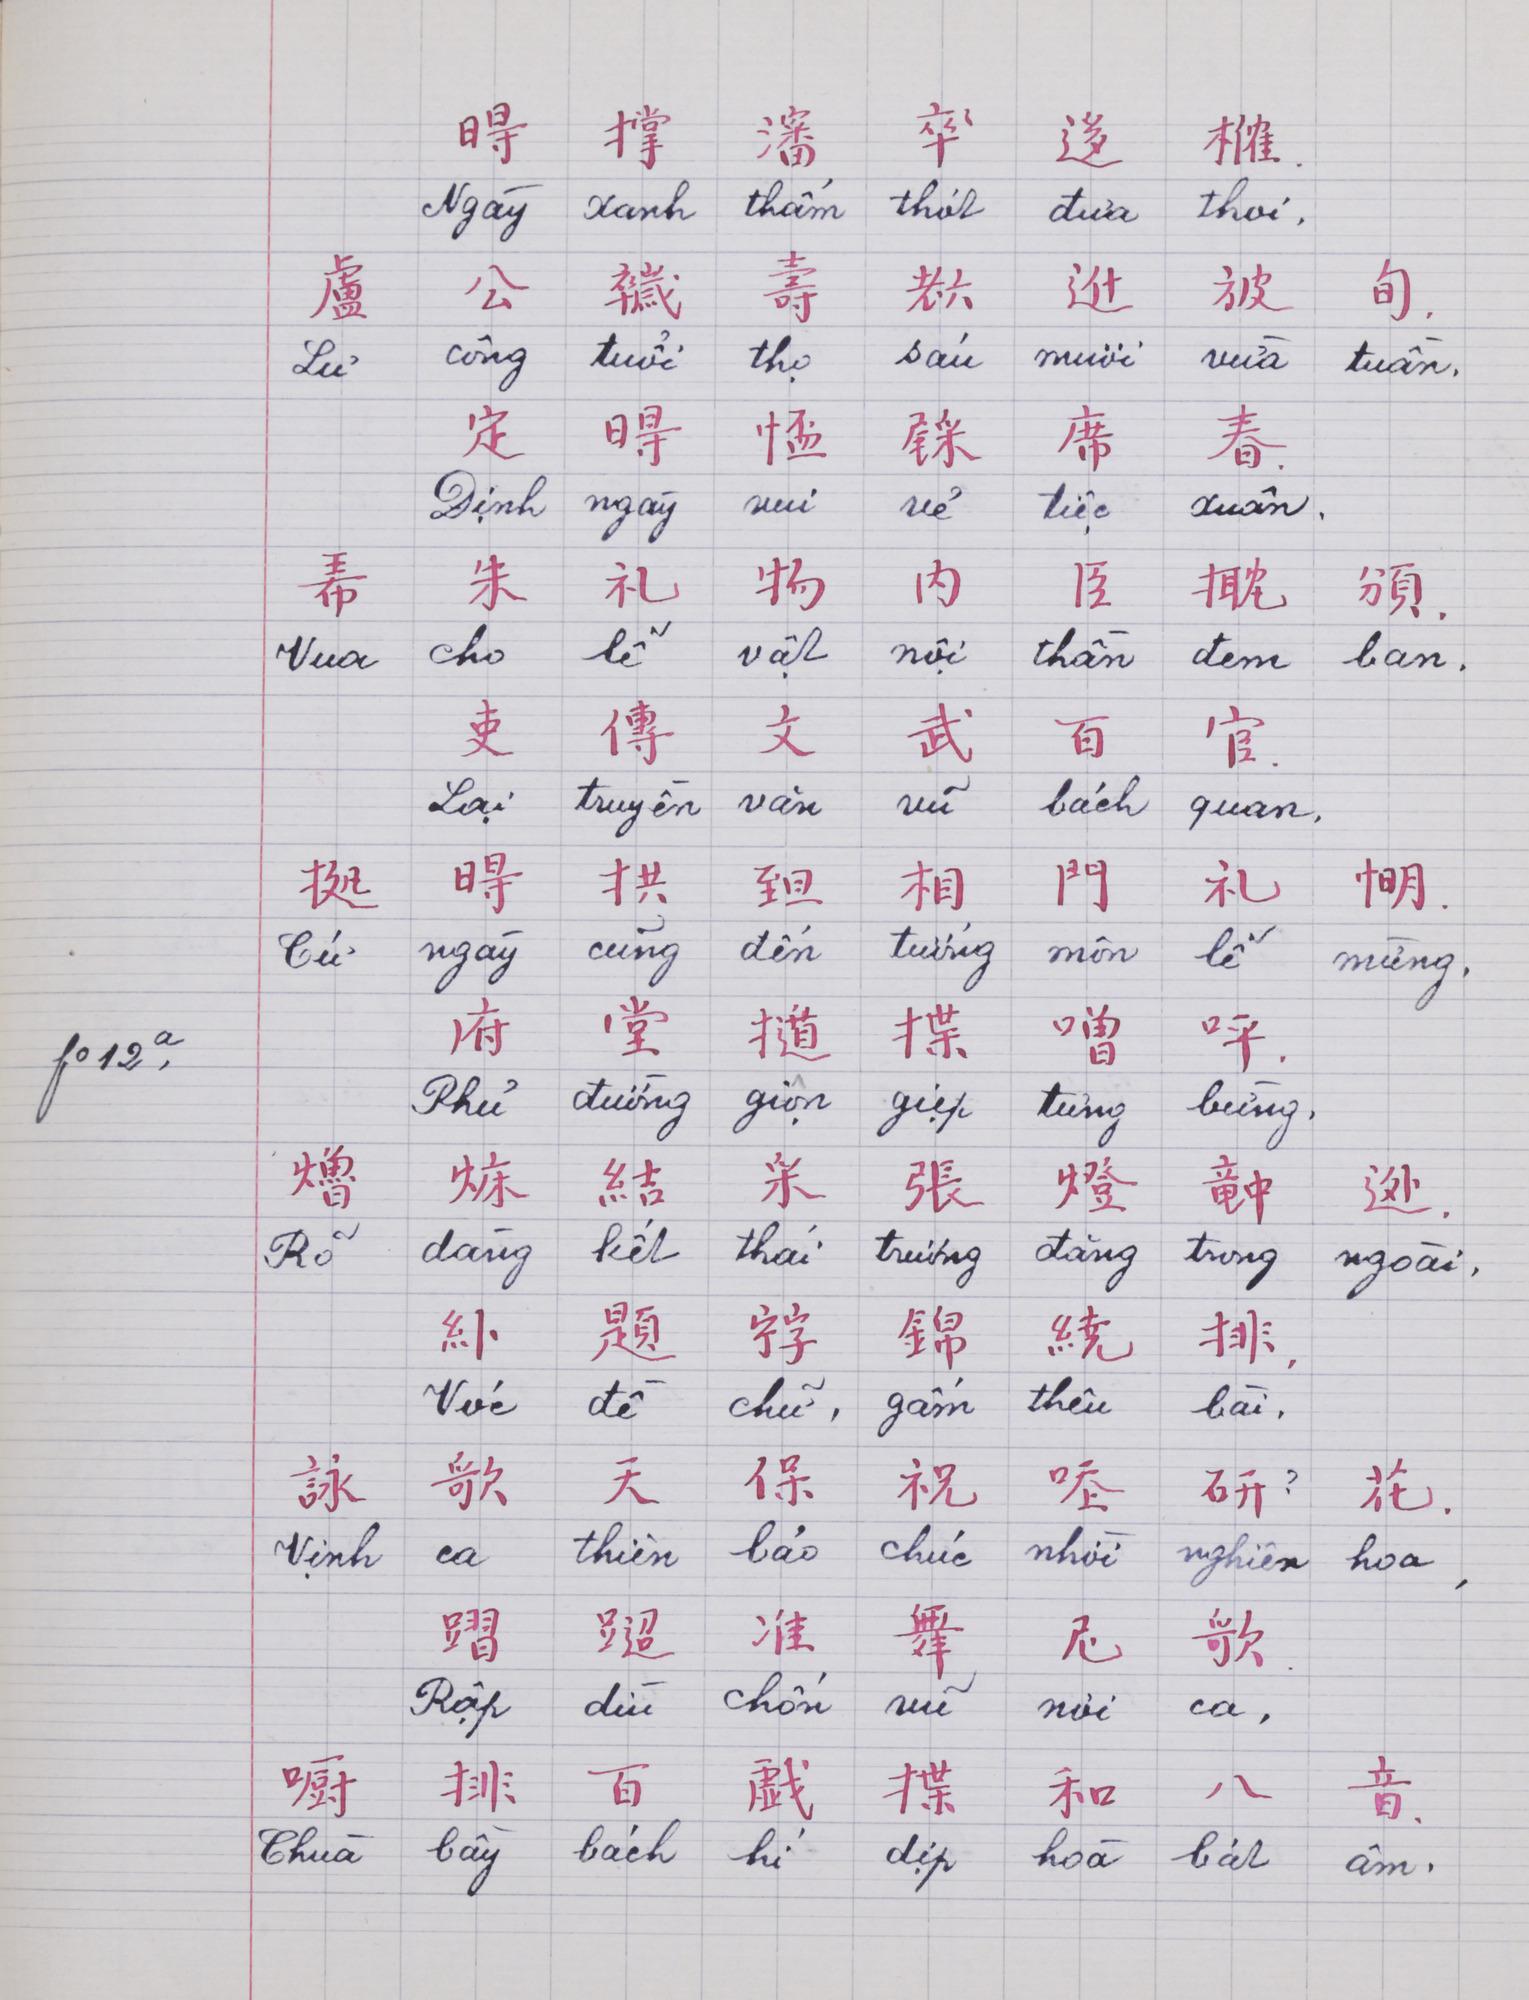 𣈜撑瀋卒迻𣙺.
Ngày xanh thấm thót đưa thoi.
盧公𢆫壽𦒹𨒒𣃣旬.
Lư công tuổi thọ sáu mươi vừa tuần.
定𣈜𢙇𨤔席春.
Định ngày vui vẻ tiệc xuân.
𢂜朱礼物内臣㧴頒.
Vua cho lễ vật nội thần đem ban.
吏傳文武百官.
Lại truyền văn vũ bách quan.
𢫃𣈜拱𦤾相門礼𢜠.
Cứ ngày cũng đến tướng môn lễ mừng.
府堂𢴑揲噌呯.
Phủ đường giộn giẹp tưng bừng.
𤏣𤇊結采張燈𥪝外.
fo 12a.
Rỡ dàng kết thái trương đăng trong ngoài.
𥿠題𡨸錦繞排,
Vóc đề chữ, gấm thêu bài.
詠歌天保祝㗚研? 花.
Vịnh ca thiên bảo chúc nhời nghiên hoa,
蹓𨀍准舞尼歌.
Rập dìu chốn vũ nơi ca,
㕑排百戲揲和八音.
Chua bầy bách hí dịp hoà bát âm.